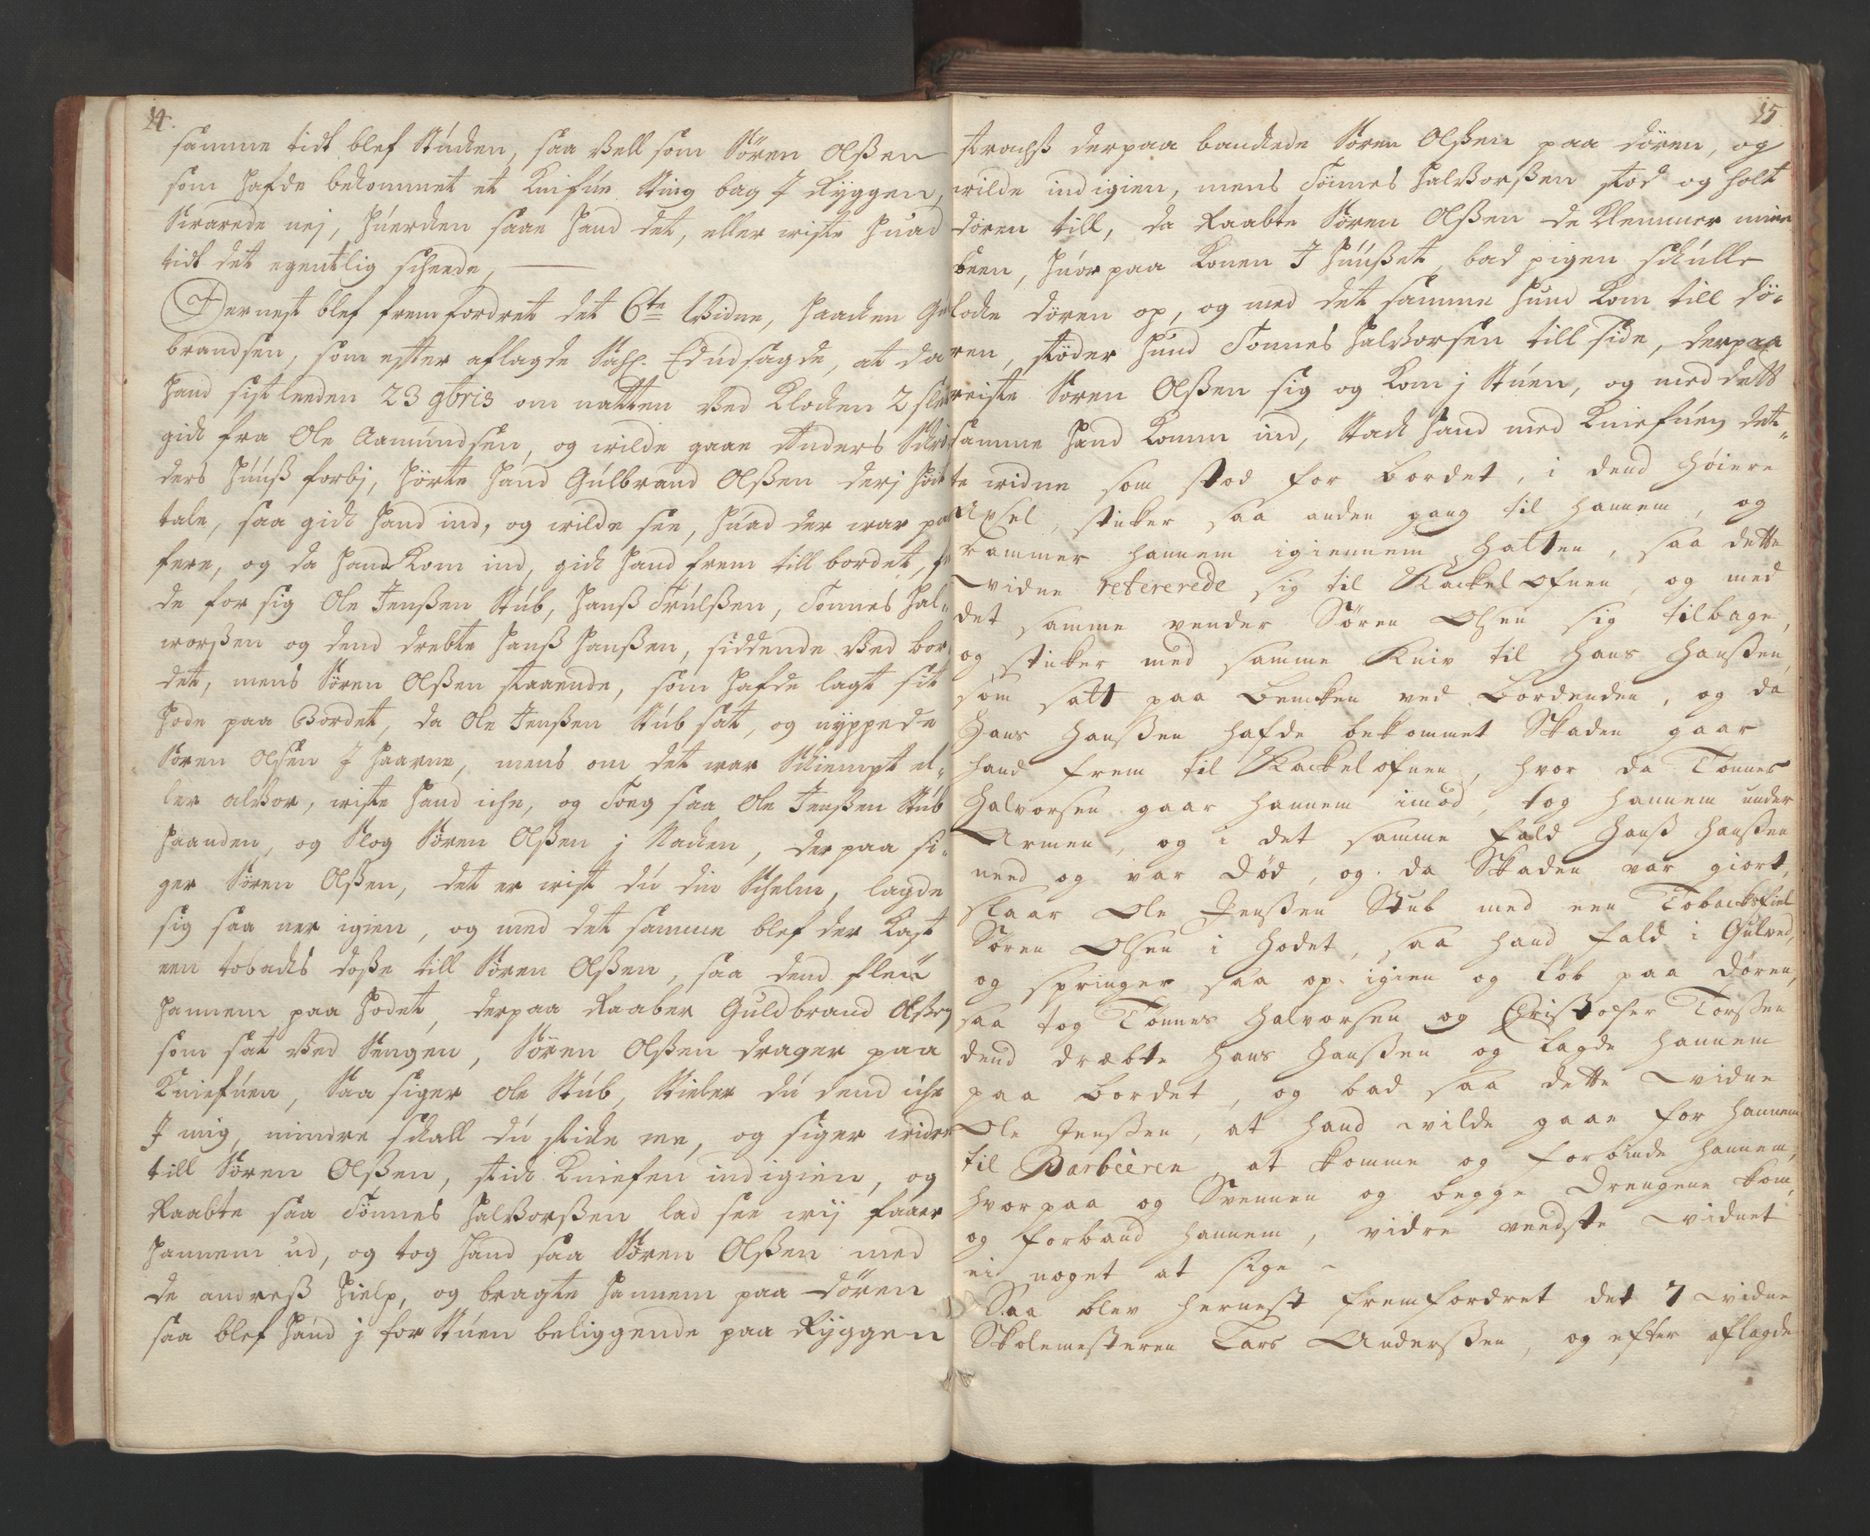 14.
samme tidt blef Stucken, saa Vell som Søren Olßen
som hafde bekommet et Knifúe Sting bag I Ryggen,
Svarede nej, húercken saae hand det, eller viste húad
tidt det egentlig scheede,
Dernest blef fremfordret det 6te Vidne, Haacken Gul
brandsen, som efter aflagde Sahl. Ed údsagde, at da
hand sistleeden 23 9bris om natten Ved Klocken 2 slet
gick fra Ole Aamúndsen, og vilde gaae Anders
ders húúß forbj, hørte hand Gúlbrand Olßen derj høit
tale, saa gick hand ind, og vilde see, húad der var paa
fere, og da hand Kom ind, gick hand frem till bordet, fa
de for sig Ole Jenßen Stúb, Hanß Trúlßen, Tønnes Hal-
vorßen og dend drebte Hanß Hanßen, siddende Ved bor
det, mens Søren Olßen staaende, som hafde lagt sit
Hode paa Bordet, da Ole Jenßen Stúb sat, og nyppede
Søren Olsen I Haarne, mens om det var Skiempt el-
ler alVor, viste hand iche, og Toeg saa Ole Jenßen Stúb
Haanden, og Slog Søren Olßen j Nacken, derpaa si-
ger Søren Olßen, det er vist dú din Schelm, lagde
sig saa ner igien, og med det samme blef der Kast
een tobacks doße till Søren Olßen, saa dend fleu
hannem paa hodet, derpaa Raaber Guldbrand Olßen
som sat Ved Sengen, Søren Olßen drager paa
Kniefúen, Saa siger Ole Stúb, Stieler dú dend iche
I mig, mindre schall dú sticke me, og siger vidre
till Søren Olßen, stick Kniefen ind igien, og
Raabte saa Tønnes HalVorßen lad see vij faaer
hannem úd, og tog hand saa Søren Olßen med
de andreß hielp, og bragte hannem paa døren
saa blef hand j forstúen beliggende paa Ryggen
15
strachß derpaa banckede Søren Olßen paa døren, og
vilde ind igien, mens Tønnes HalVorßen stod og holt
døren till, da Raabte Søren Olßen de Klemmer mine
been, húorpaa Konen I Húúßet, bad pigen schúlle
locke døren op, og med det samme hund Kom till dø-
ren, støder hund Tonnes HalVorsen till side, derpaa
reiste Søren Olßen sig og Kom j Stúen, og med dett
samme hand Komm ind, Stack hand med Kniefúen det-
te vidne som stod for bordet, i dend høiere
Axel, sticker saa anden gang til hannem, og
rammer hannem igiennem Hatten, saa dette
vidne retererede sig til Kackelofnen, og med
det samme vender Søren Olsen sig tilbage,
og sticker med samme Kniv til Hans Hanßen,
som satt paa bencken ved Bordenden, og da
Hans Hanßen hafde bekommet Skaden gaar
hand frem til Kackelofnen, hvor da Tønnes
Halvorsen gaar hannem imod, tog hannem under
Armen, og i det samme fald Hanß Hanßen
need og var død, og da Skaden var giort,
slaar Ole Jenßen Stub med een Tobacksfiel
Søren Olsen i Hodet, saa hand fald i Gúlved,
og springer saa op igien og løb paa døren,
saa tog Tønnes Halvorsen og Christofer Torßen
dend dræbte Hans Hanßen og lagde hannem
paa bordet, og bad saa dette vidne
Ole Jenßen, at hand vilde gaae for hannem
til Barbeeren, at komme og forbinde hannem,
hvorpaa og Svennen og begge Drengene kom,
og forband hannem, vidre veedste vidnet
ei noget at sige -
Saa blev hernest fremfordret det 7 vidne
Skolemesteren Lars Anderßen, og efter aflagde